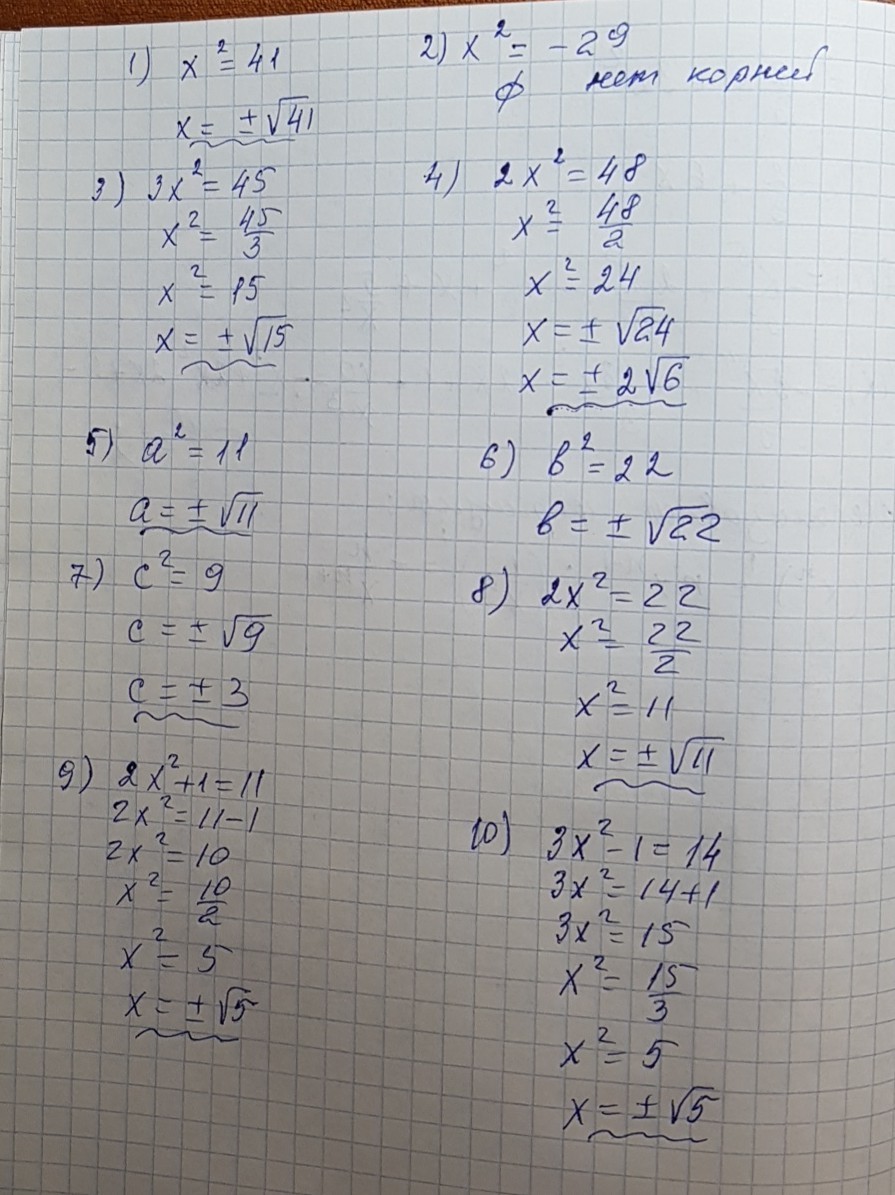 1) x² = 41
x = ±√41
2) x² = -29
∅ нет корней
3) 3x² = 45
x² = 45/3
x² = 15
x = ±√15
4) 2x² = 48
x² = 48/2
x² = 24
x = ± √24
x = ± 2√6
5) a² = 11
a = ± √11
6) в² = 22
в = ± √22
7) c² = 9
c = ± √9
c = ± 3
8) 2x² = 22
x² = 22/2
x² = 11
x = ± √11
9) 2x² + 1 = 11
2x² = 11 - 1
2x² = 10
x² = 10/2
x² = 5
x = ± √5
10) 3x² - 1 = 14
3x² = 14 + 1
3x² = 15
x² = 15/3
x² = 5
x = ± √5